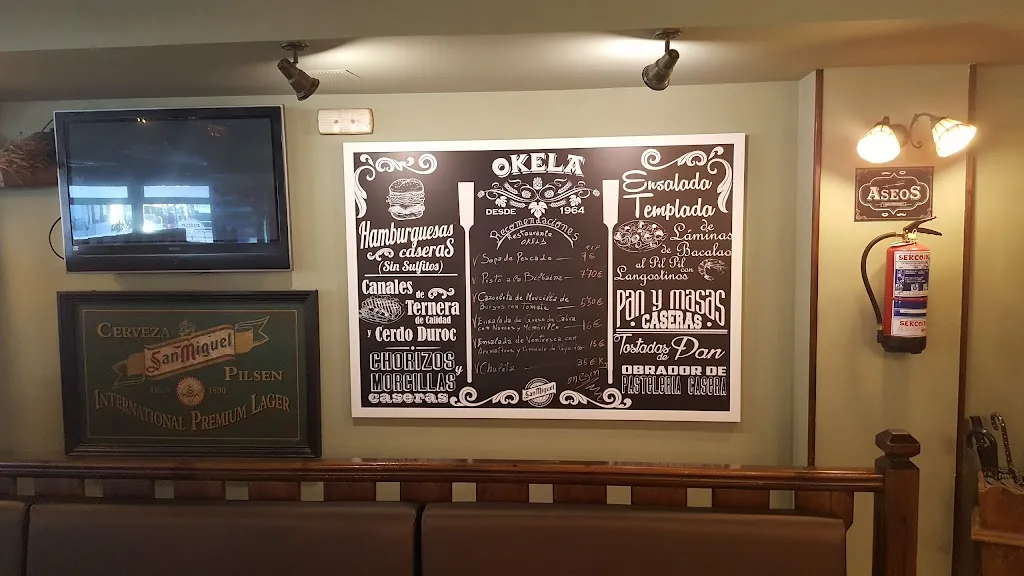 OKELA
DESDE 1964
Recomendaciones
Restaurante
OKELA
P.V.P
√ Sopa de Pescado 9€
7'70€
√ Cazuelita de Morcilla de
Burgos con Tomate 5'50€
√ Ensalada de Queso de Cabra
con Nueces y Membrillo 16€
√ Ensalada de Ventresca con
15€
√ Chuleta 35€ Kg
San Miguel
Hamburguesas
caseras
(Sin Sulfitos)
Canales
de
Ternera
de Calidad
y Cerdo Duroc
CHORIZOS
y
MORCILLAS
caseras
Ensalada
Templada
de
Láminas
de Bacalao
al Pil Pil
con
Langostinos
PAN Y MASAS
CASERAS
Tostadas
de Pan
OBRADOR DE
PASTELERIA CASERA
CERVEZA
San Miguel
PILSEN
1890
INTERNATIONAL PREMIUM LAGER
ASEOS
SERCOIN
SERCOIN